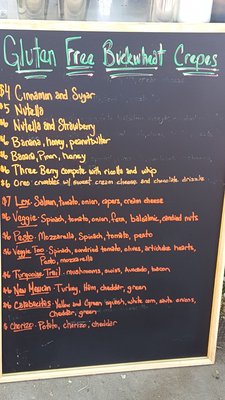 Gluten Free Buckwheat Crepes
$4 Cinnamon and Sugar
$5 Nutella
$6 Nutella and Strawberry
$6 Banana, honey, peanut butter
$6 Banana, Pinon, honey
$6 Three Berry compote with ricotta and whip
$6 Oreo crumbles w/ sweet cream cheese and chocolate drizzle
$7 Lox- Salmon, tomato, onion, capers, cream cheese
$6 Veggie- Spinach, tomato, onion, feta, balsalmic, candied nuts
$6 Pesto- Mozzarella, Spinach, tomato, pesto
$6 Veggie Too- Spinach, sundried tomato, olives, artichoke hearts,
Pesto, mozzarella
$6 Turquoise Trail- mushrooms, swiss, Avocado, bacon
$6 New Mexican- Turkey, Ham, cheddar, green
$6 Calabacitas- Yellow and Green squash, white corn, onions,
Cheddar, green
$6 Chorizo- Potato, chorizo, cheddar